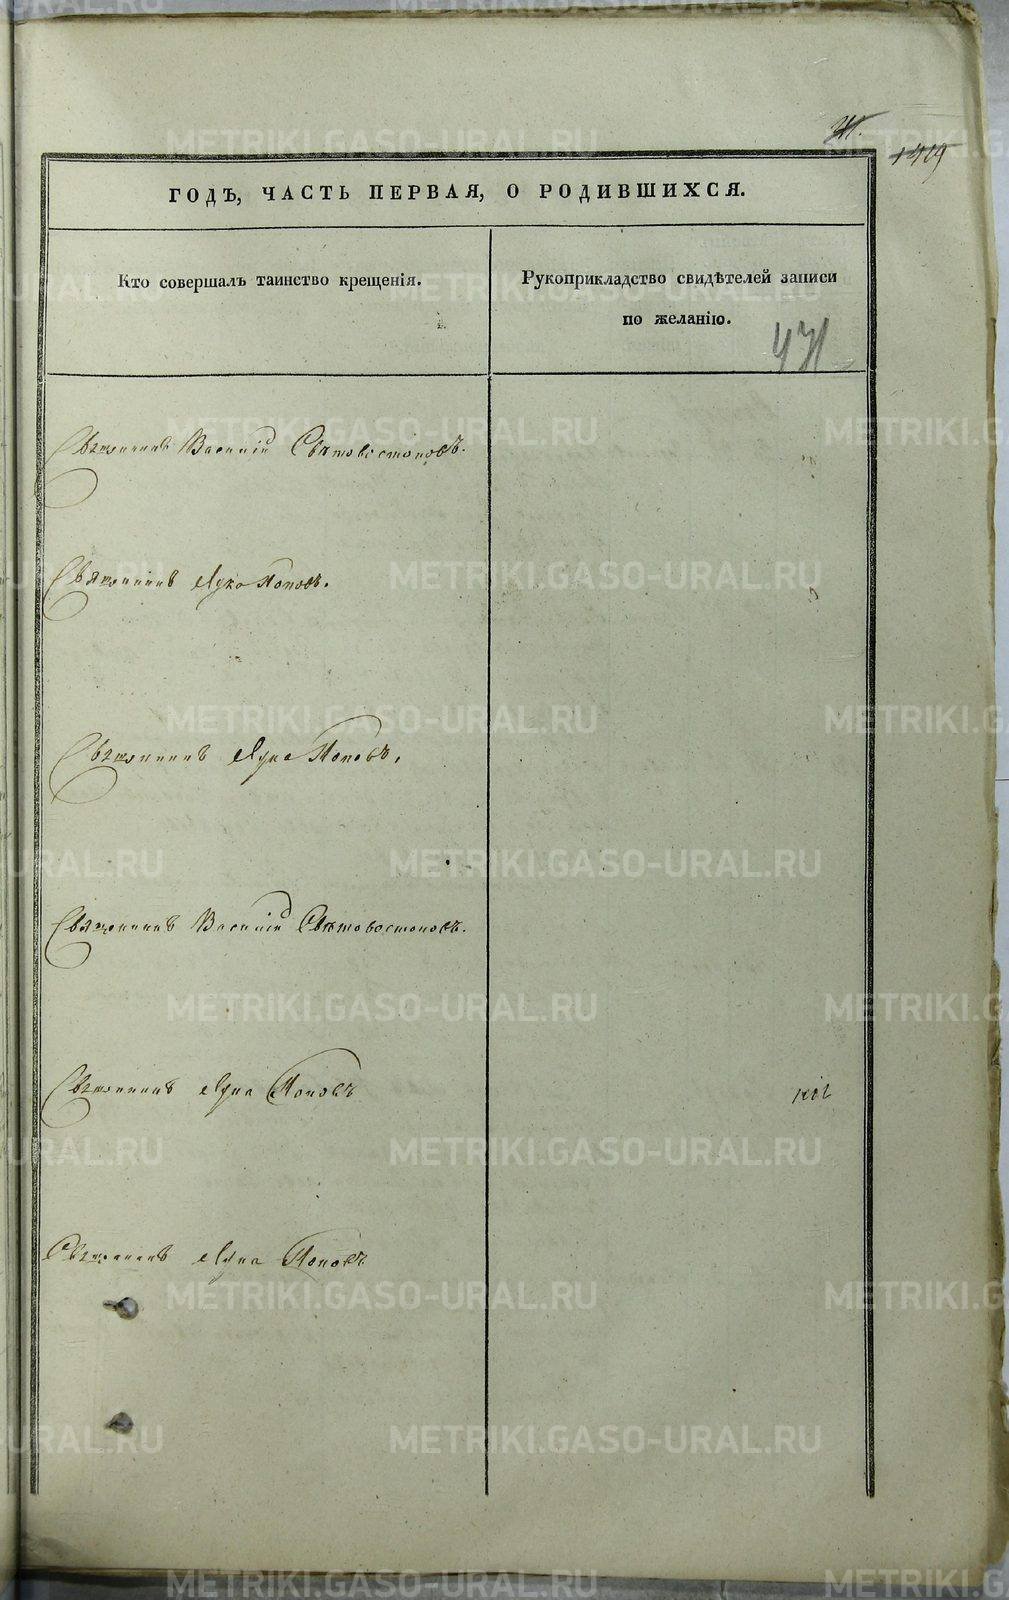 1419
ГОДЪ, ЧАСТЬ ПЕРВАЯ, О РОДИВШИХСЯ.
Кто совершалъ таинство крещенія.
Рукоприкладство свидѣтелей записи
по желанію.
471
Священникъ Василій Свѣтовостоковъ.
Священникъ Лука Поповъ.
Священникъ Лука Поповъ.
Священникъ Василій Свѣтовостоковъ.
Священникъ Лука Поповъ
Священникъ Лука Поповъ
METRIKI.GASO-URAL.RU